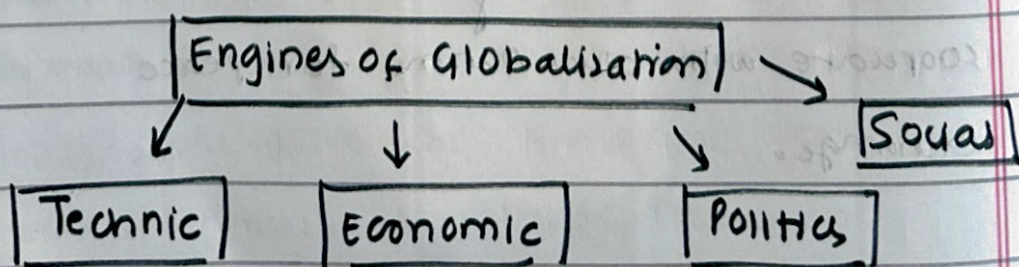 Engines of Globalisation
Social
Technic
Economic
Politics